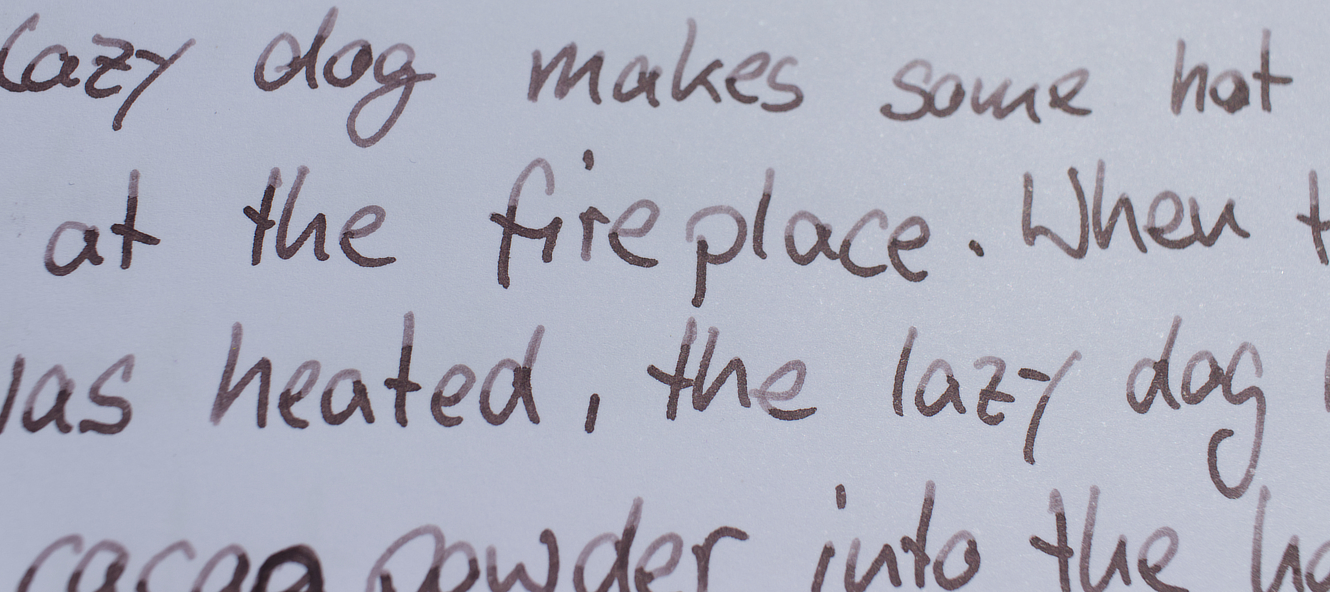 lazy dog makes some hot
at the fireplace. When
was heated, the lazy dog
cacao powder into the